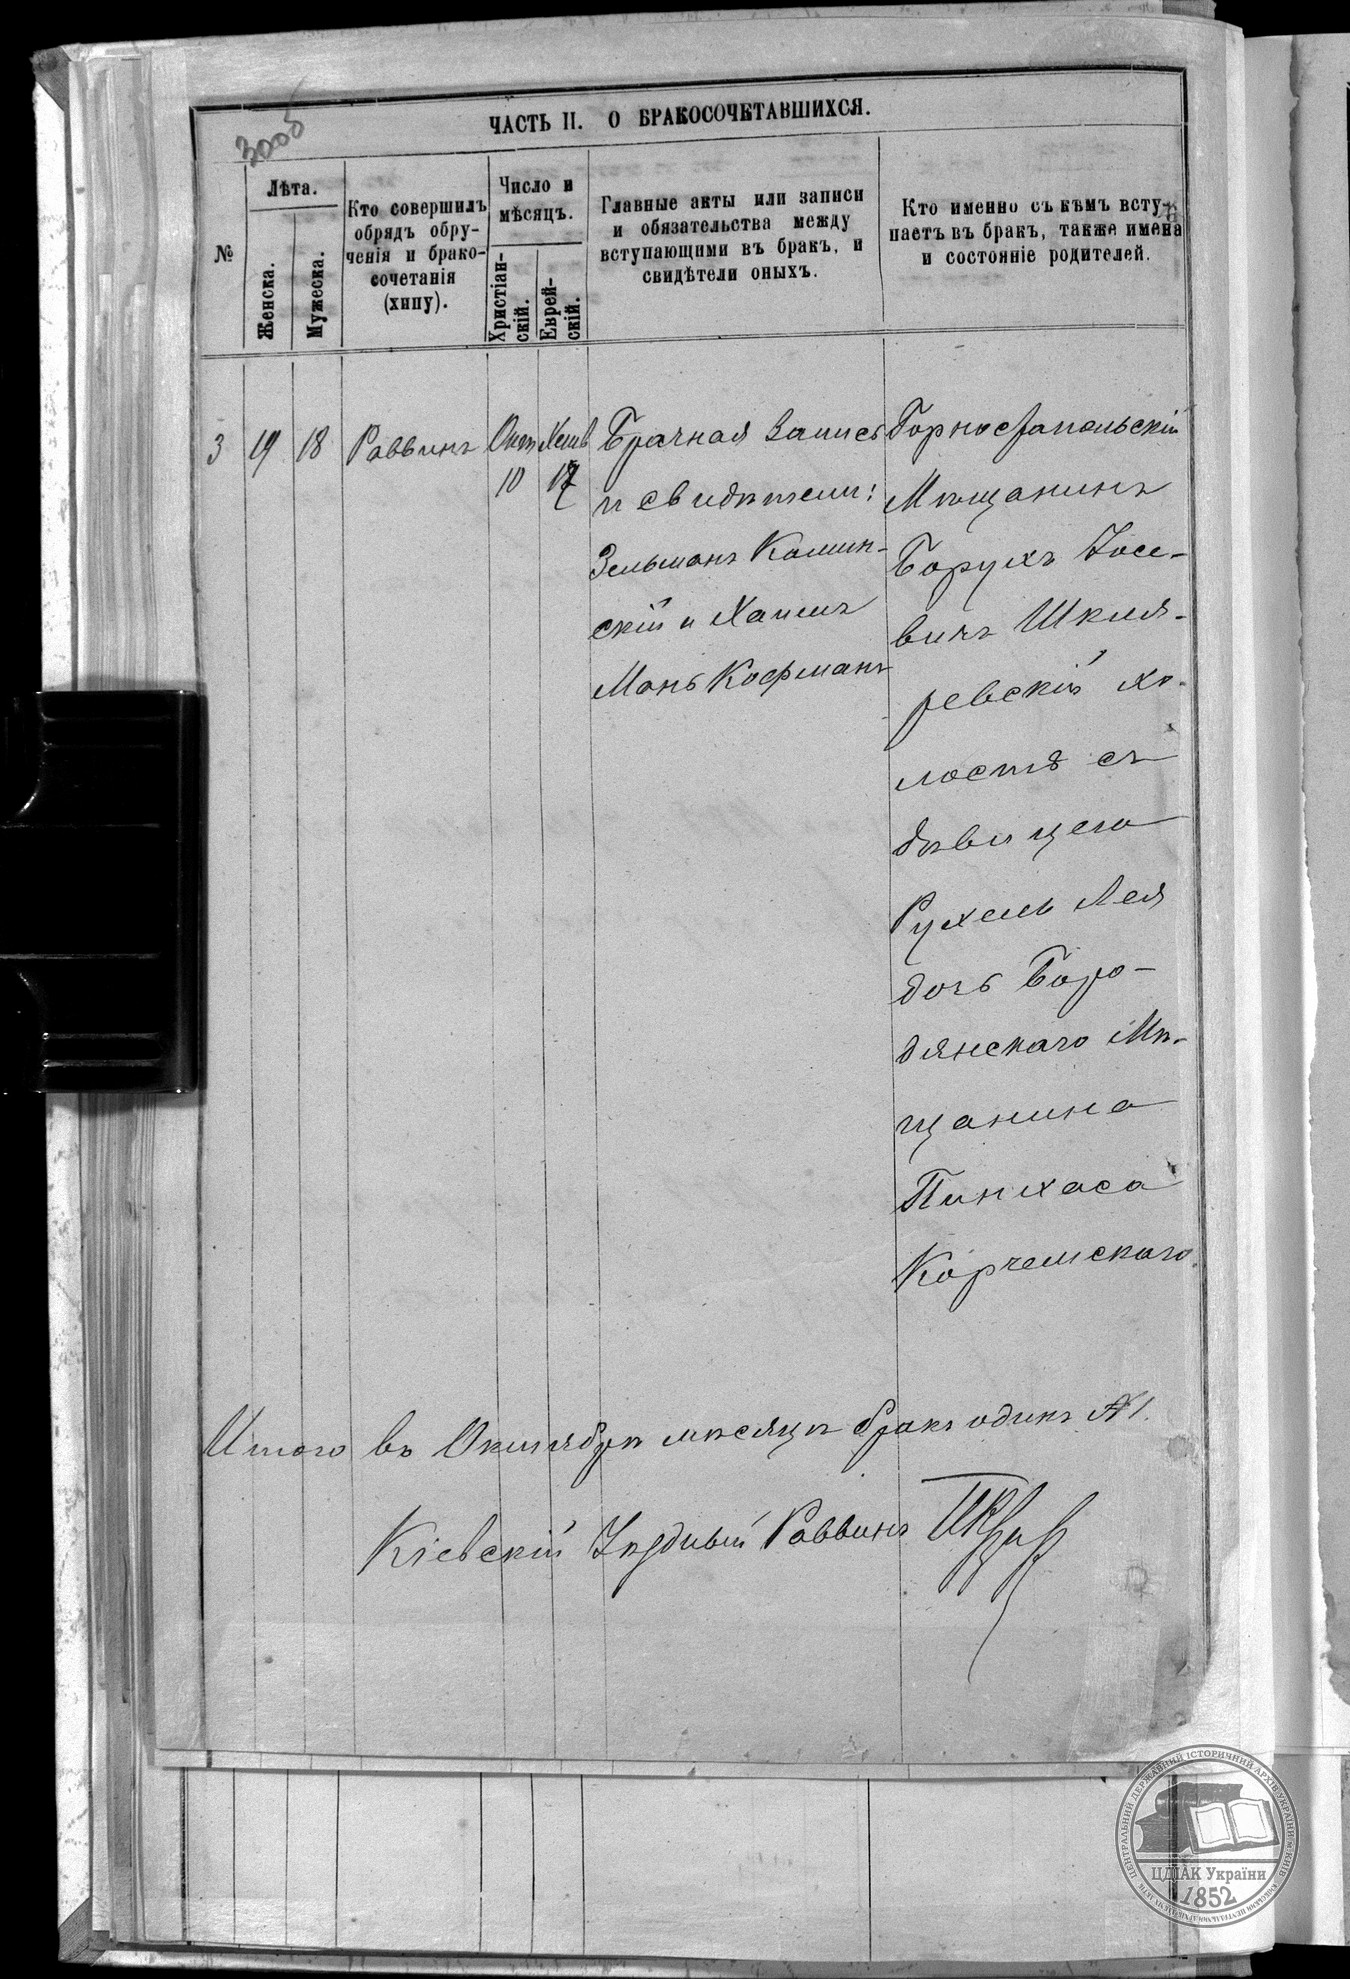 ЧАСТЬ II. О БРАКОСОЧЕТАВШИХСЯ.
3005
№
Лѣта.
Женска.
Мужеска.
Кто совершилъ
обрядъ обру-
ченія и брако-
сочетанія
(хипу).
Число и
мѣсяцъ.
Христіан-
скій.
Еврей-
скій.
Главные акты или записи
и обязательства между
вступающими въ бракъ, и
свидѣтели оныхъ.
Кто именно съ кѣмъ всту-
паетъ въ бракъ, также имена
и состояніе родителей.
3
19
18
Раввинъ
Окт
10
Хешв
Брачная Запись
и свидѣтели:
Зельманъ Камин-
скій и Хаимъ
Мань Кофманъ
Горностапольскій
Мѣщанинъ
Борухъ Іосе-
вичъ Шкля-
ревскій хо-
лостъ съ
дѣвицею
Рухель Лея
дочь Боро-
дянскаго Мѣ-
щанина
Пинхаса
Корчемскаго
Итого въ Октябрѣ мѣсяцѣ бракъ одинъ №1.
Кіевскій Уѣздный Раввинъ
ЦЕНТРАЛЬНИЙ ДЕРЖАВНИЙ ІСТОРИЧНИЙ АРХІВ УКРАЇНИ М.КИЇВ
ЦДІАК України
1852